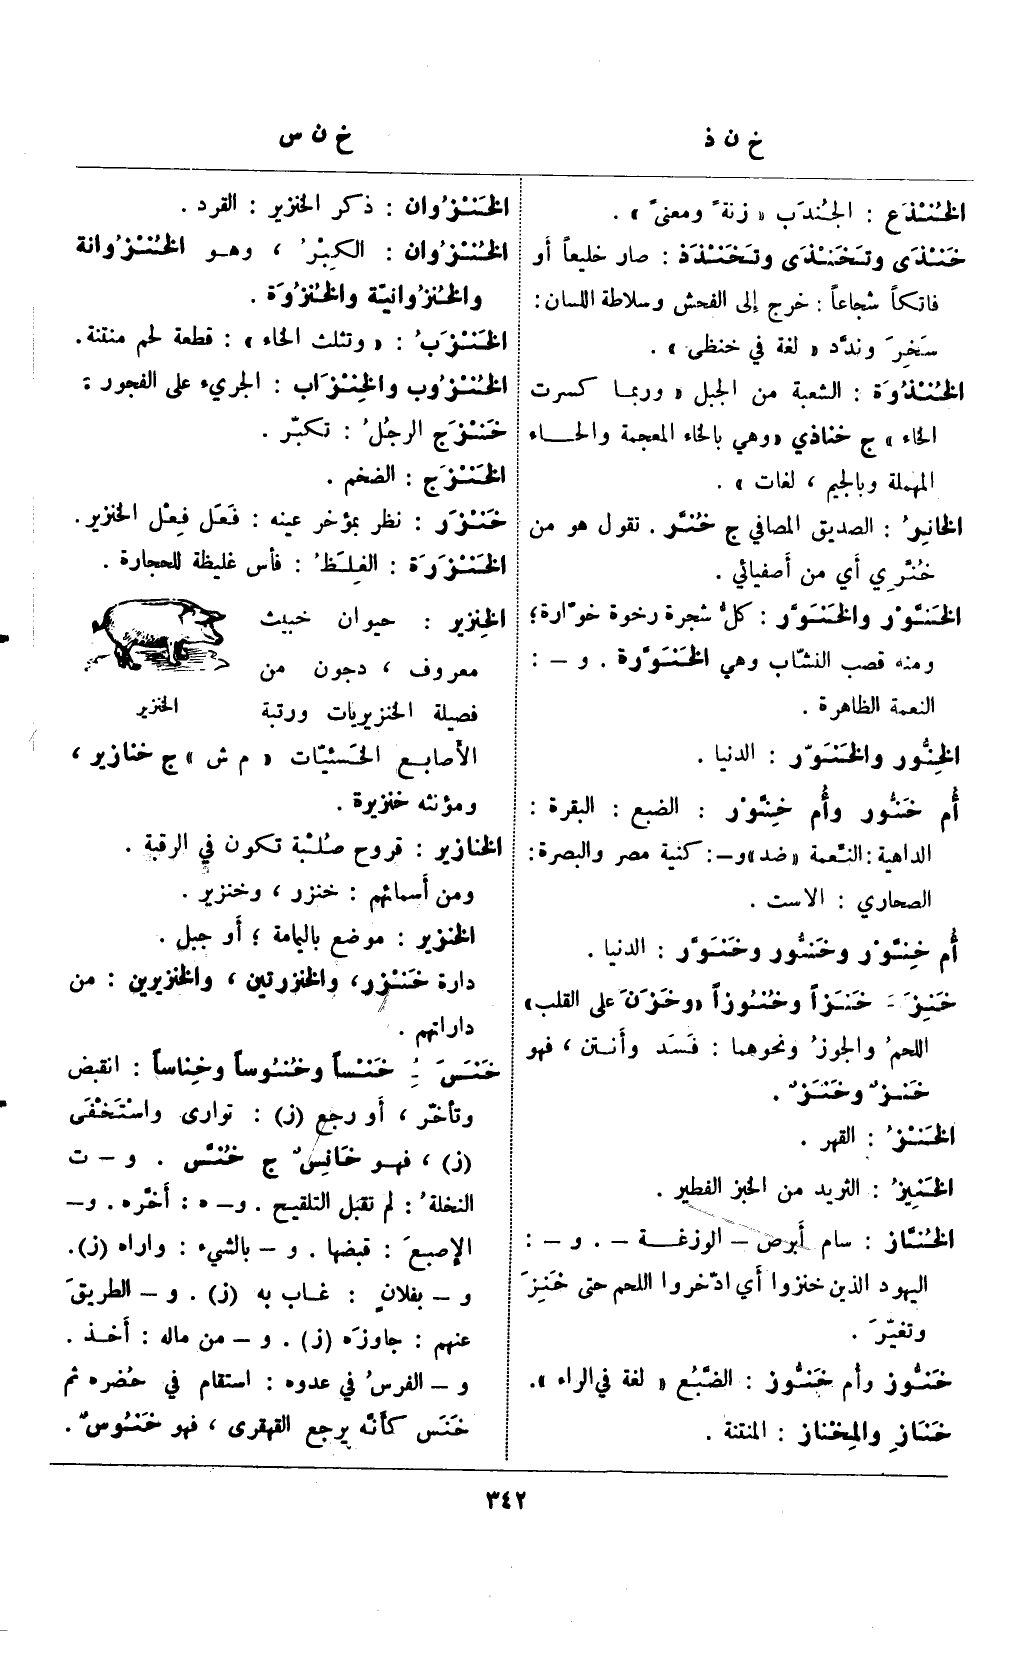 خ ن ذ
خ ن س
الخُنْذَع : الجُندَب « زنةً ومعنىً » .
خَنْذَى وتَخَنْذَى وتَخَنْذَذَ : صار خليعاً أو
فاتكاً شجاعاً : خرج إلى الفحش وسلاطة اللسان :
سَخِرَ وندَّد « لغة في خنظى » .
الخُنْذُوَة : الشعبة من الجبل « وربما كسرت
الخاء » ج خناذي « وهي بالخاء المعجمة والحاء
المهملة وبالجيم ، لغات » .
الخانِرُ : الصديق المصافي ج خُنَّر . تقول هو من
خُنَّرِي أي من أصفيائي .
الخَنَّوْر والخَنَوَّر : كلُّ شجرة رخوة خوّارة ؛
ومنه قصب النشّاب وهي الخَنَوَّرة . و – :
النعمة الظاهرة .
الخِنُّور والخَنَوَّر : الدنيا .
أُم خَنُّور وأُم خِنَّوْر : الضبع : البقرة :
الداهية : النَّعمة « ضد » و – : كنية مصر والبصرة :
الصحاري : الاست .
أُم خِنَّوْر وخَنُّور وخَنَوَّر : الدنيا .
خَنِزَ َ خَنَزاً وخُنُوزاً « وخَزَنَ على القلب »
اللحمُ والجوزُ ونحوهما : فَسَد وأَنتن ، فهو
خَنِزٌ وخَنَزٌ .
الخَنْزُ : القهر .
الخَنِيزُ : الثريد من الخبز الفطير .
الخُنَّاز : سام أبرص – الوزغة – . و – :
اليهود الذين خنزوا أي ادّخروا اللحم حتى خَنِزَ
وتغيّرَ .
خَنُّوز وأم خَنُّوز : الضَّبُع « لغة في الراء » .
خَنَازِ والمِخْناز : المنتنة .
الخَنْزُوان : ذكر الخنزير : القرد .
الخُنْزُوان : الكِبْرُ ، وهو الخُنْزُوانة
والخُنزُوانيّة والخُنزُوَة .
الخَنْزَبُ : « وتثلث الخاء » : قطعة لحم منتنة .
الخُنْزُوب والخِنْزَاب : الجريء على الفجور :
خَنْزَج الرجُلُ : تكبّر .
الخَنْزَج : الضخم .
خَنْزَر : نظر بمؤخر عينه : فَعَل فِعْل الخنزير .
الخَنْزَرَة : الغِلَظُ : فأس غليظة للحجارة .
الخِنزير : حيوان خبيث
معروف ، دجون من
فصيلة الخنزيريات ورتبة
الخنزير
الأصابع الخَنَثيّات « م ش » ج خنازير ،
ومؤنثه خنزيرة .
الخنازير : قروح صُلْبة تكون في الرقبة .
ومن أسمائهم : خنزر ، وخنزير .
الخنزير : موضع باليامة ؛ أو جبل .
دارة خَنْزر ، والخنزرتين ، والخنزيرين : من
داراتهم .
خَنَسَ ُِ خَنْساً وخُنُوساً وخِناساً : انقبض
وتأخّر ، أو رجع (ز) : توارى واسْتَخْفَى
(ز) ، فهو خَانِسٌ ج خُنَّس . و – ت
النخلةُ : لم تقبل التلقيح . و – ه : أَخَّره . و –
الإصبعَ : قبضها . و – بالشيء : واراه (ز) .
و – بفلانٍ : غاب به (ز) . و – الطريقَ
عنهم : جاوزه (ز) . و – من ماله : أَخذ .
و – الفرسُ في عدوه : استقام في حُضره ثم
خَنَس كأنّه يرجع القهقرى ، فهو خَنُوسٌ .
٣٤٢